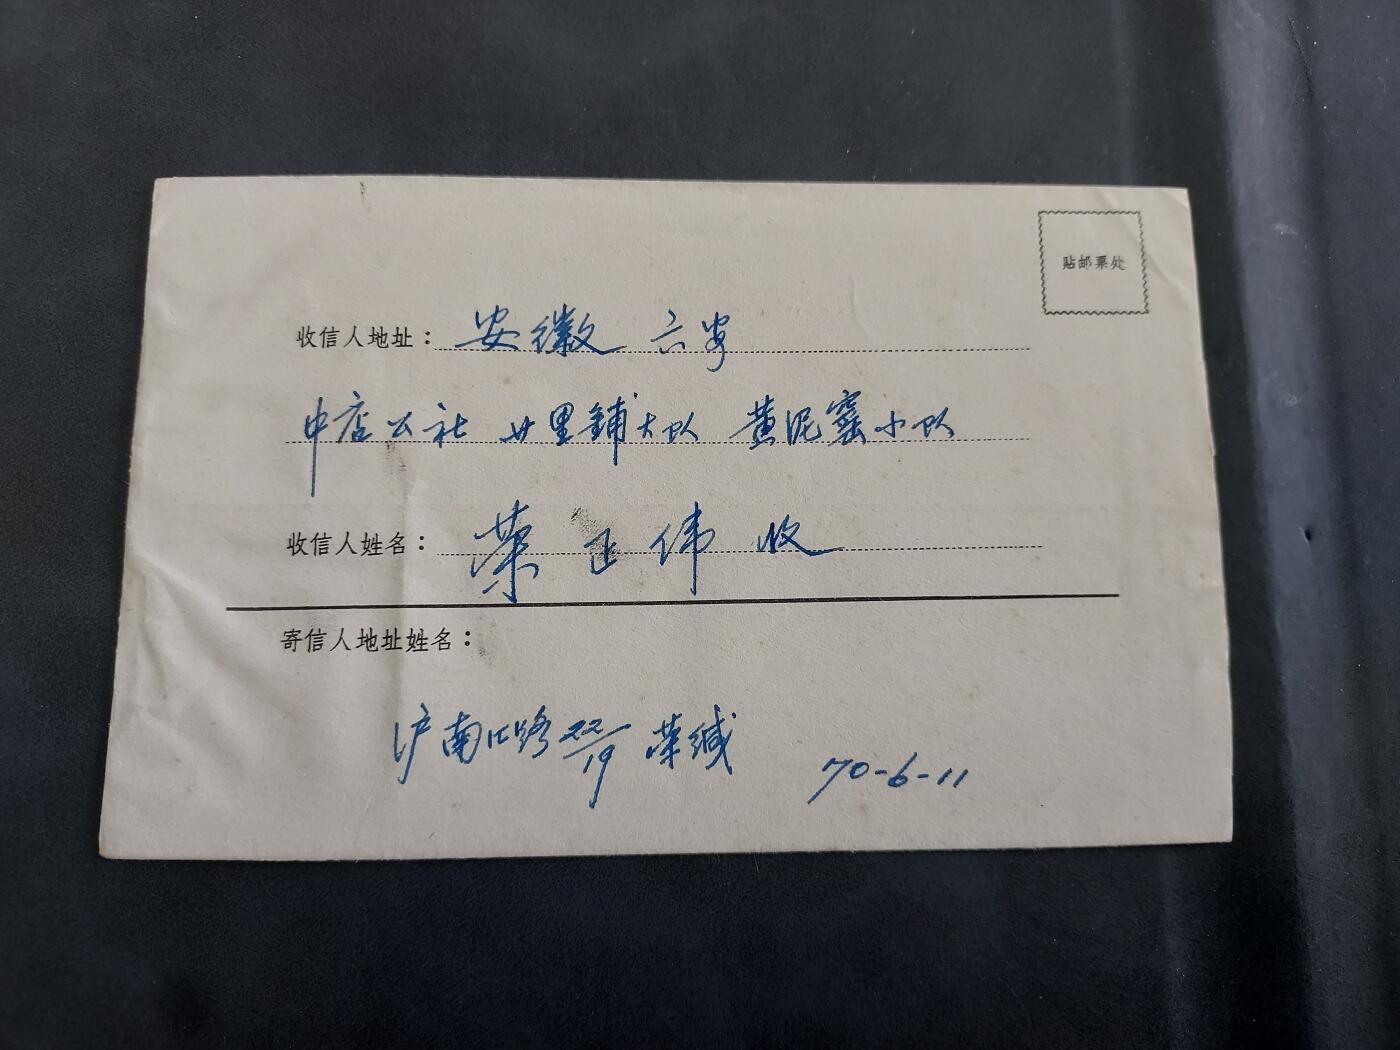 贴邮票处
收信人地址：安徽 六安
中店公社 廿里鋪大队 黄泥窑小队
收信人姓名：荣正伟 收
寄信人地址姓名：
沪南北路22/19 荣缄 70-6-11